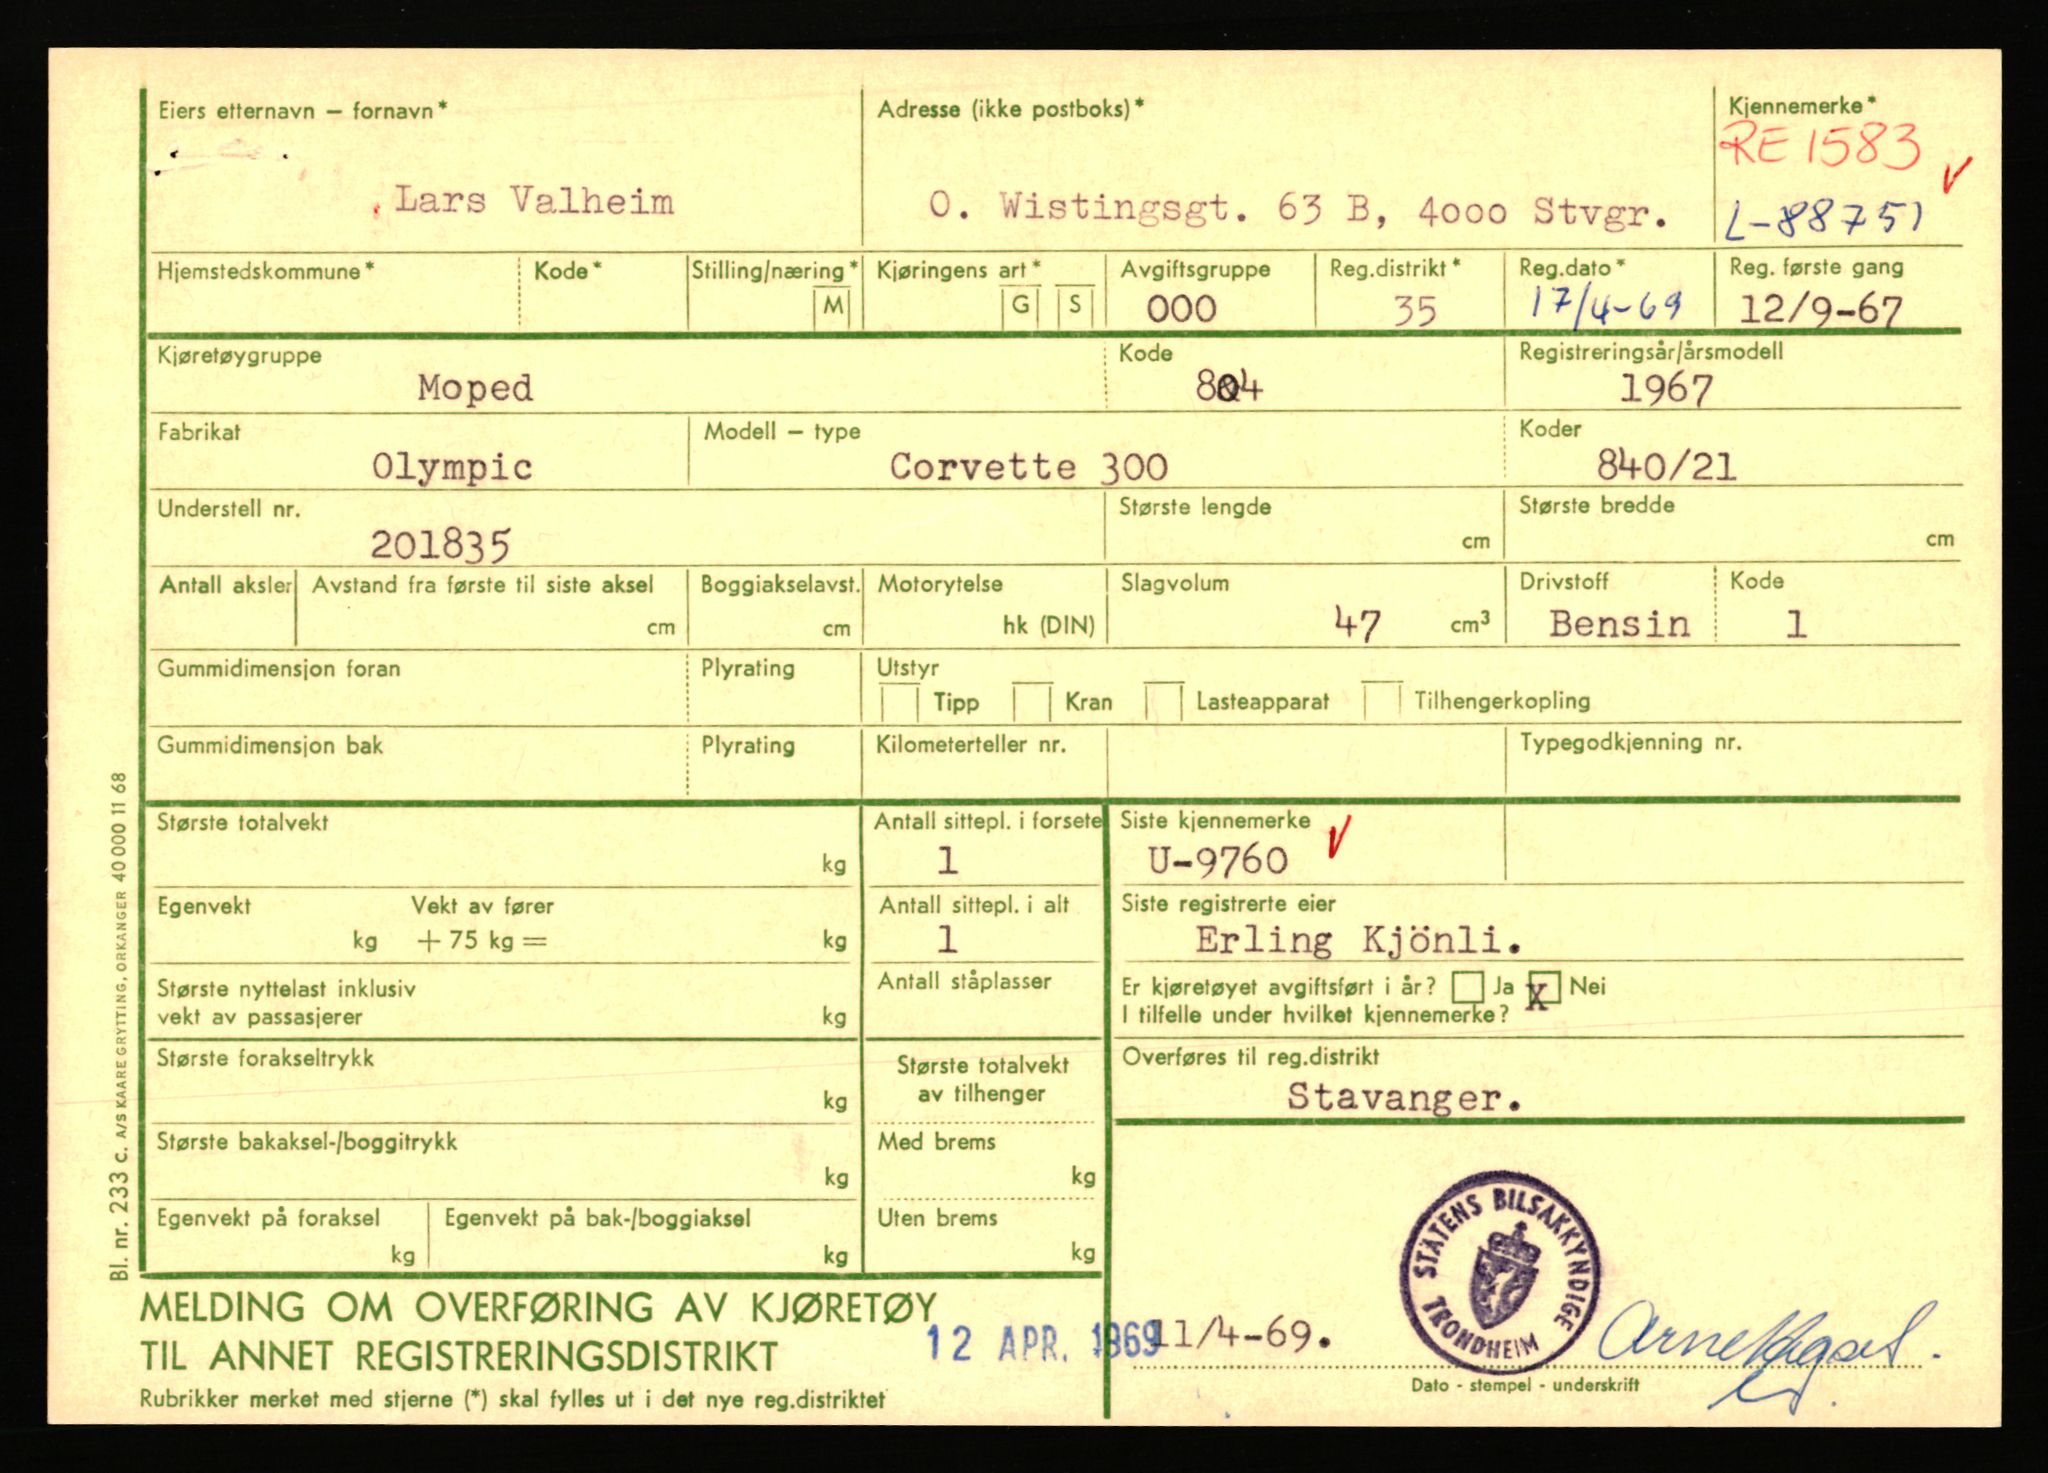 Eiers etternavn – fornavn*
Adresse (ikke postboks)*
Kjennemerke*
RE 1583
Lars Valheim
O. Wistingsgt. 63 B, 4000 Stvgr.
L-88751
Hjemstedskommune*
Kode*
Stilling/næring*
M
Kjøringens art*
G
S
Avgiftsgruppe
000
Reg.distrikt*
35
Reg.dato*
17/4-69
Reg. første gang
12/9-67
Kjøretøygruppe
Moped
Kode
804
Registreringsår/årsmodell
1967
Fabrikat
Olympic
Modell – type
Corvette 300
Koder
840/21
Understell nr.
201835
Største lengde
cm
Største bredde
cm
Antall aksler
Avstand fra første til siste aksel
cm
Boggiakselavst.
cm
Motorytelse
hk (DIN)
Slagvolum
47 cm³
Drivstoff
Bensin
Kode
1
Gummidimensjon foran
Plyrating
Utstyr
Tipp
Kran
Lasteapparat
Tilhengerkopling
Gummidimensjon bak
Plyrating
Kilometerteller nr.
Typegodkjenning nr.
Største totalvekt
kg
Antall sittepl. i forsete
1
Siste kjennemerke
U-9760
Egenvekt
kg
Vekt av fører
+ 75 kg =
kg
Antall sittepl. i alt
1
Siste registrerte eier
Erling Kjönli.
Største nyttelast inklusiv
vekt av passasjerer
kg
Antall ståplasser
Er kjøretøyet avgiftsført i år? Ja X Nei
I tilfelle under hvilket kjennemerke?
Største forakseltrykk
kg
Største totalvekt
av tilhenger
Overføres til reg.distrikt
Stavanger.
Største bakaksel-/boggitrykk
kg
Med brems
kg
Egenvekt på foraksel
kg
Egenvekt på bak-/boggiaksel
kg
Uten brems
kg
STATENS BILSAKKYNDIGE
TRONDHEIM
MELDING OM OVERFØRING AV KJØRETØY
TIL ANNET REGISTRERINGSDISTRIKT
12 APR. 1969
11/4-69.
Dato - stempel - underskrift
Rubrikker merket med stjerne (*) skal fylles ut i det nye reg.distriktet
Bl. nr. 233 c. A/S KAARE GRYTTING, ORKANGER 40 000 11 68